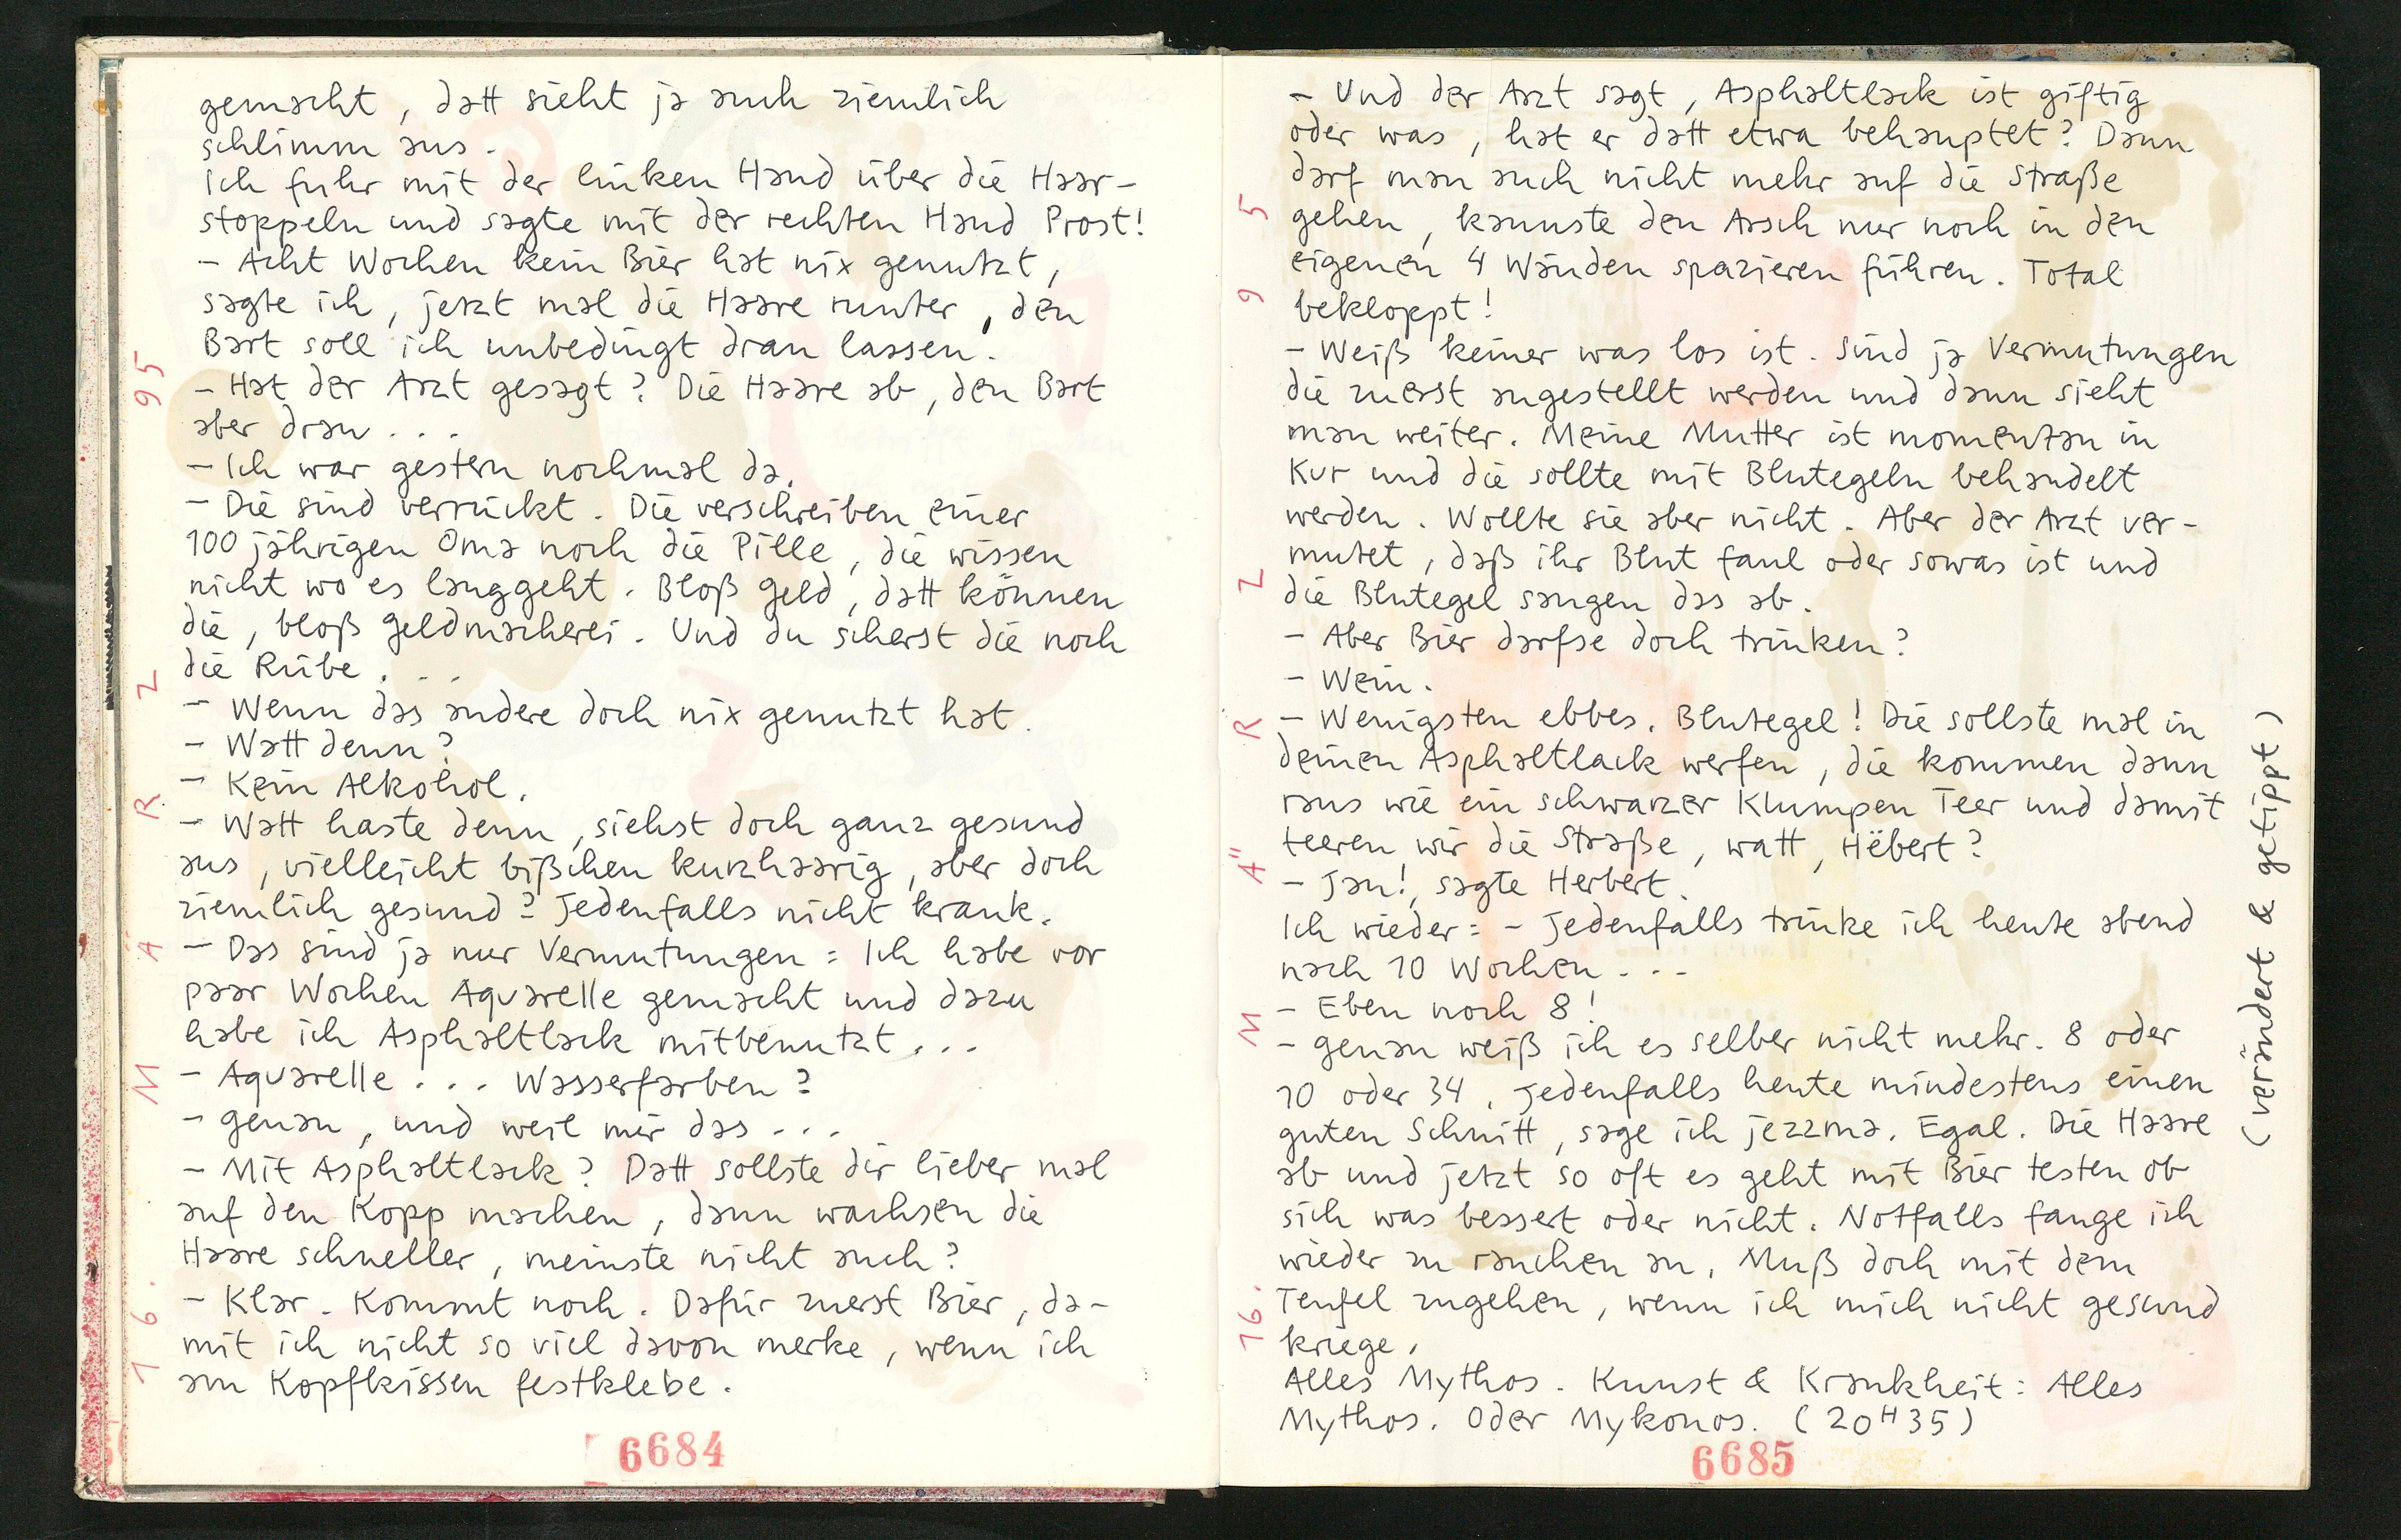 gemacht, datt sieht ja auch ziemlich
schlimm aus.
Ich fuhr mit der linken Hand über die Haar-
stoppeln und sagte mit der rechten Hand Prost!
– Acht Wochen kein Bier hat nix genutzt,
sagte ich, jetzt mal die Haare runter, den
Bart soll ich unbedingt dran lassen.
– Hat der Arzt gesagt? Die Haare ab, den Bart
aber dran...
– Ich war gestern nochmal da.
– Die sind verrückt. Die verschreiben einer
100 jährigen Oma noch die Pille, die wissen
nicht wo es langgeht. Bloß Geld, datt können
die, bloß Geldmacherei. Und du scherst die noch
die Rübe...
– Wenn das andere doch nix genutzt hat.
– Watt denn?
– Kein Alkohol.
– Watt haste denn, siehst doch ganz gesund
aus, vielleicht bißchen kurzhaarig, aber doch
ziemlich gesund? Jedenfalls nicht krank.
– Das sind ja nur Vermutungen: Ich habe vor
paar Wochen Aquarelle gemacht und dazu
habe ich Asphaltlack mitbenutzt...
– Aquarelle... Wasserfarben?
– Genau, und weil mir das...
– Mit Asphaltlack? Datt sollste dir lieber mal
auf den Kopp machen, dann wachsen die
Haare schneller, meinste nicht auch?
– Klar. Kommt noch. Dafür zuerst Bier, da-
mit ich nicht so viel davon merke, wenn ich
am Kopfkissen festklebe.
16. MÄRZ 95
6684
– Und der Arzt sagt, Asphaltlack ist giftig
oder was, hat er datt etwa behauptet? Dann
darf man auch nicht mehr auf die Straße
gehen, kannste den Arsch nur noch in den
eigenen 4 Wänden spazieren führen. Total
bekloppt!
– Weiß keiner was los ist. Sind ja Vermutungen
die zuerst angestellt werden und dann sieht
man weiter. Meine Mutter ist momentan in
Kur und die sollte mit Blutegeln behandelt
werden. Wollte sie aber nicht. Aber der Arzt ver-
mutet, daß ihr Blut faul oder sowas ist und
die Blutegel saugen das ab.
– Aber Bier darfse doch trinken?
– Wein.
– Wenigsten ebbes. Blutegel! Die sollste mal in
deinen Asphaltlack werfen, die kommen dann
raus wie ein schwarzer Klumpen Teer und damit
teeren wir die Straße, watt, Hëbert?
– Jau!, sagte Herbert.
Ich wieder: – Jedenfalls trinke ich heute abend
nach 10 Wochen...
– Eben noch 8!
– Genau weiß ich es selber nicht mehr. 8 oder
10 oder 34. Jedenfalls heute mindestens einen
guten Schnitt, sage ich jezzma. Egal. Die Haare
ab und jetzt so oft es geht mit Bier testen ob
sich was bessert oder nicht. Notfalls fange ich
wieder zu rauchen an. Muß doch mit dem
Teufel zugehen, wenn ich mich nicht gesund
kriege.
Alles Mythos. Kunst & Krankheit: Alles
Mythos. Oder Mykonos. (20H35)
16. MÄRZ 95
(verändert & getippt)
6685